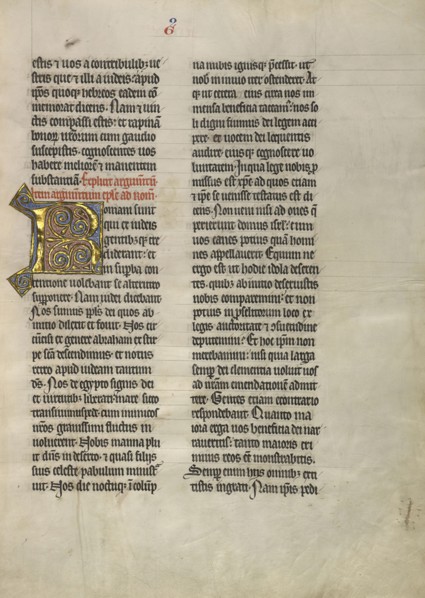 2
6
estis et vos a contribulibus ve
stris que et illi a iudeis: apud
ipsos quoque hebreos eadem com
memorat dicens. Nam et vin
ctis compassi estis: et rapinam
bonorum vestrorum cum gaudio
suscepistis. cognoscentes vos
habere meliorem et manentem
substantiam. Explicit argumentum
Item argumentum epistole ad romanos
Romani sunt
qui ex iudeis
gentibusque cre
diderant: et
in superba con
tentione volebant se alterutro
superponere. Nam iudei dicebant
Nos sumus populus dei quos ab
initio dilexit et fovit. Nos cir
cumcisi ex genere abraham ex stir
pe sancta descendimus. et notus
retro apud iudeam tantum
deus. Nos de egypto signis dei
et virtutibus liberati: mare sicco
transivimus pede. cum inimicos
nostros gravissimi fluctus in
voluerent. Nobis manna plu
it dominus in deserto. et quasi filiis
suis celeste pabulum minist
rauit. Nos die noctuque in colump
na nubis ignisque precessit. ut
nobis in invio iter ostenderet. At
que ut cetera eius circa nos in
mensa beneficia taceamus: nos so
li digni fuimus dei legem acci
pere. et vocem dei loquentis
audire. eiusque cognoscere vo
luntatem. In qua lege nobis pro
missus est christus. ad quos etiam
et ipse se venisse testatus est di
cens. Non veni nisi ad oves que
perierunt domus israel. cum
vos canes potius quam homi
nes appellaverit. Equum ne
ergo est ut hodie idola deseren
tes. quibus ab initio deseruistis
nobis comparemini: et non
potius in proselitorum locum ex
legis auctoritate et consuetudine
deputemini? Et hoc ipsum non
merebamini: nisi quia larga
semper dei clementia voluit vos
ad nostram emendationem admit
tere. Gentes etiam econtrario
respondebant. Quanto ma
iora erga vos beneficia dei nar
raveritis: tanto maioris cri
minis reos vos monstrabitis.
Semper enim hiis omnibus exti
tistis ingrati. Nam ipsis pedi